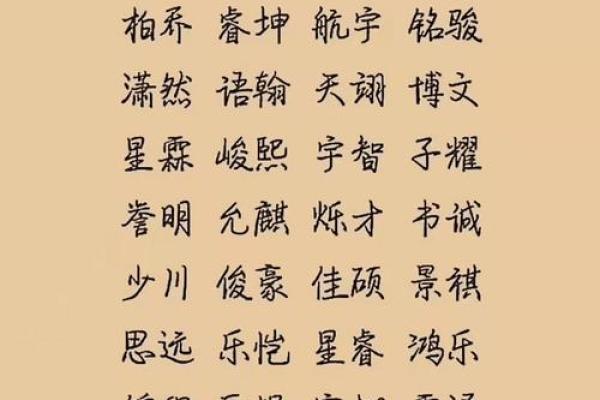 柏乔 睿坤 航宇 铭骏
潇然 语翰 天翊 博文
星霖 峻熙 宇智 子耀
誉明 允麒 烁才 书诚
少川 俊豪 佳硕 景祺
思远 乐恺 星睿 鸿乐